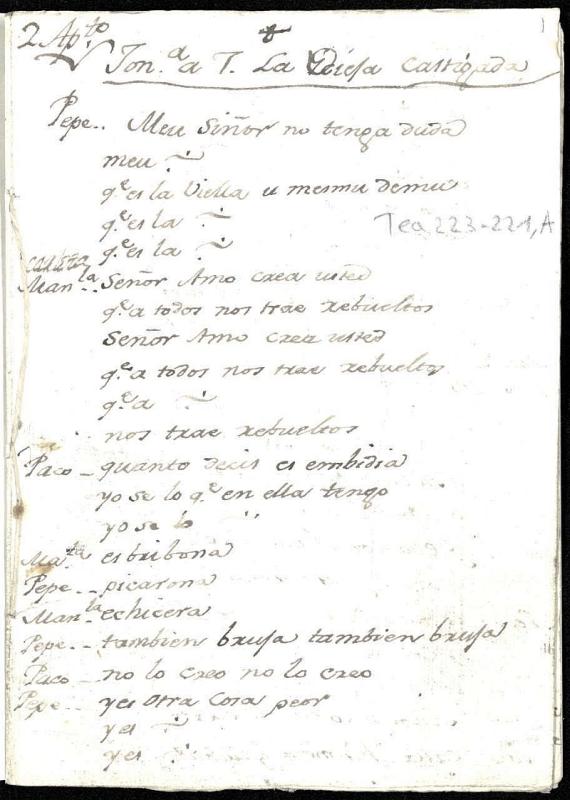 2 Ap.to
1
Ton.a a T. La Vieja castigada
Pepe.. Meu Siñor no tenga duda
meu ÷
q.e es la Viella u mesmu demu
q.e es la ÷
Tea 223-221, A
q.e es la ÷
Man.la.. Señor Amo crea usted
q.e a todos nos trae rebueltos
Señor Amo crea usted
q.e a todos nos trae rebueltos
q.e a ÷
nos trae rebueltos
Paco - quanto decis es embidia
yo se lo q.e en ella tengo
yo se lo ÷
Ma.la es bribona
Pepe.-- picarona
Man.la echicera
Pepe.-- tambien bruja tambien bruja
Paco -- no lo creo no lo creo
Pepe.-- y es otra cosa peor
y es ÷
y es ÷